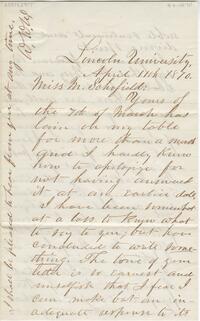 Lincoln University,
April 11th 1870.
Miss M. Schofield:
Yours of
the 7th of March has
lain on my table
for more than a month
and I hardly know
how to apologize for
not having answered
it at an earlier date.
I have been somewhat
at a loss to know what
to say to you; but have
concluded to write some-
thing. The tone of your
letter is so earnest and
unselfish that I fear I
can make but an in-
adequate response to its
I shall be pleased to hear from you at any time.